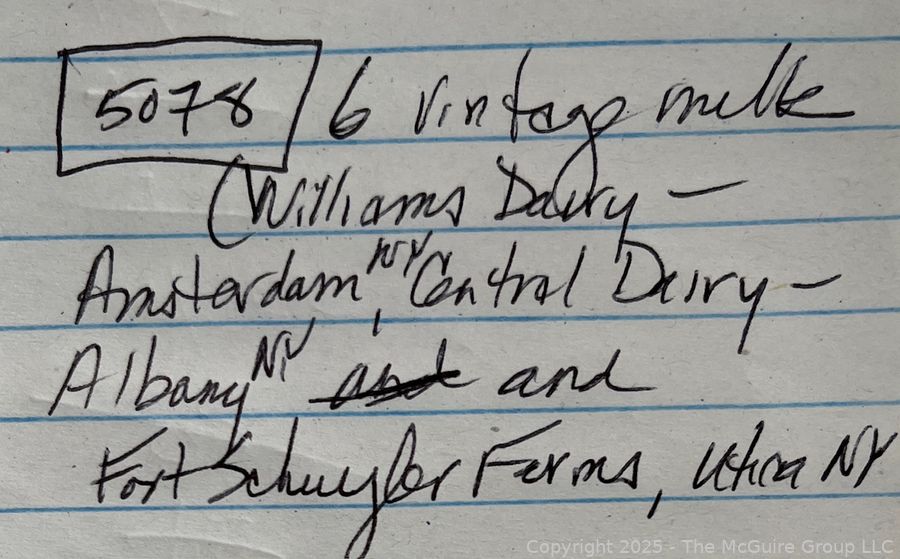 5078 6 vintage milk
(Williams Dairy -
Amsterdam NY, Central Dairy -
Albany NY and and
Fort Schuyler Farms, Utica NY
Copyright 2025 - The McGuire Group LLC